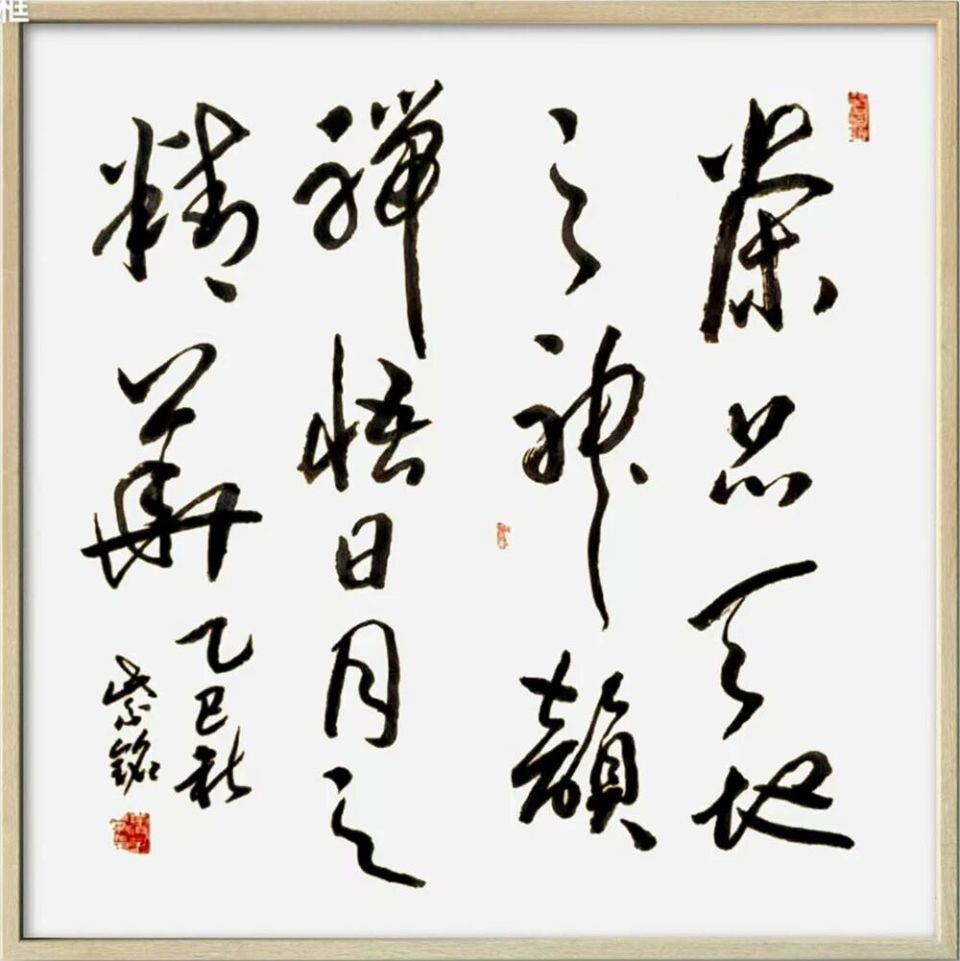 框
茶品天地
之神韻
禅悟日月之
精華
乙巳秋
紫銘